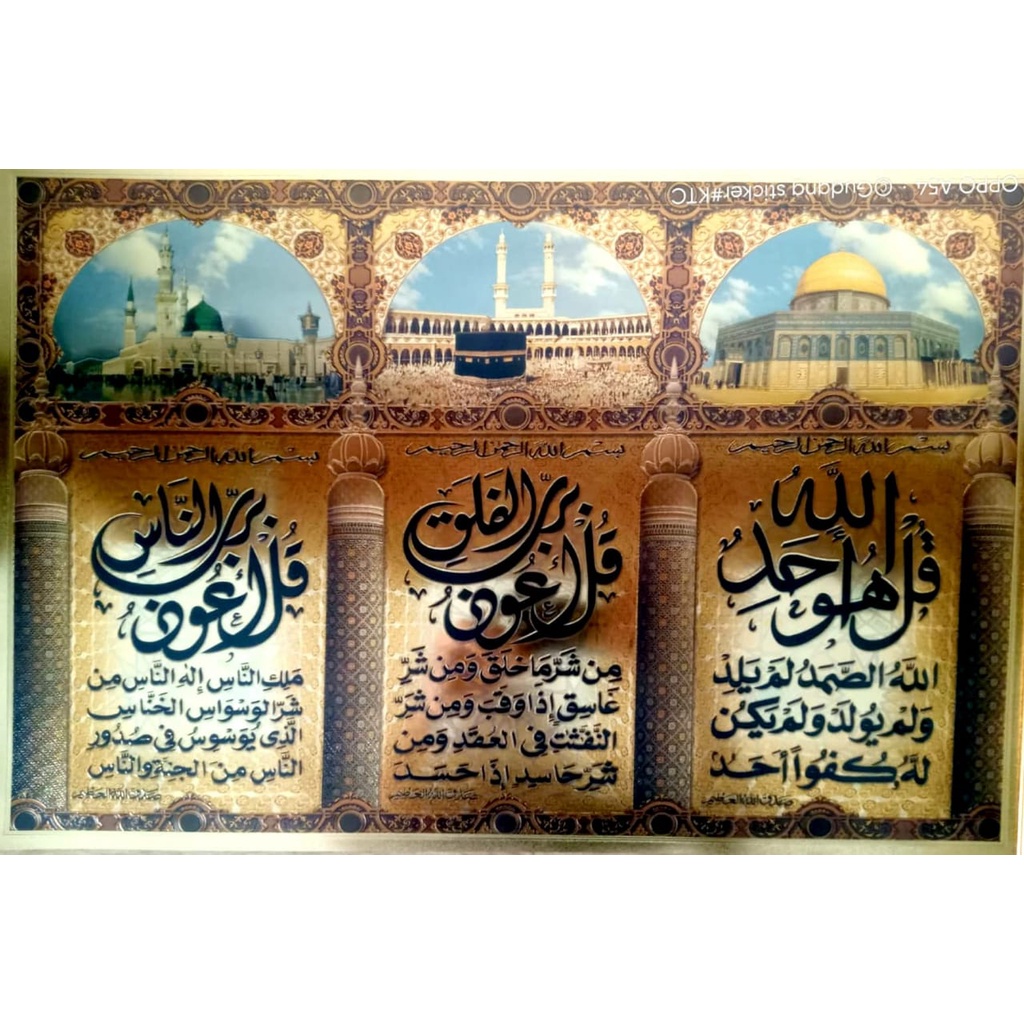 OPPO A54 · ©Gudang sticker#KTC
بسم الله الرحمن الرحيم
قُلْ هُوَ اللهُ أَحَدٌ
اللهُ الصَّمَدُ لَمْ يَلِدْ
وَلَمْ يُولَدْ وَلَمْ يَكُنْ
لَهُ كُفُواً أَحَدٌ
صدق الله العظيم
بسم الله الرحمن الرحيم
قُلْ أَعُوذُ بِرَبِّ الْفَلَقِ
مِنْ شَرِّ مَا خَلَقَ وَمِنْ شَرِّ
غَاسِقٍ إِذَا وَقَبَ وَمِنْ شَرِّ
النَّفّٰثٰتِ فِي الْعُقَدِ وَمِنْ
شَرِّ حَاسِدٍ إِذَا حَسَدَ
صدق الله العظيم
بسم الله الرحمن الرحيم
قُلْ أَعُوذُ بِرَبِّ النَّاسِ
مَلِكِ النَّاسِ إِلٰهِ النَّاسِ مِنْ
شَرِّ الْوَسْوَاسِ الْخَنَّاسِ
الَّذِي يُوَسْوِسُ فِي صُدُورِ
النَّاسِ مِنَ الْجِنَّةِ وَالنَّاسِ
صدق الله العظيم